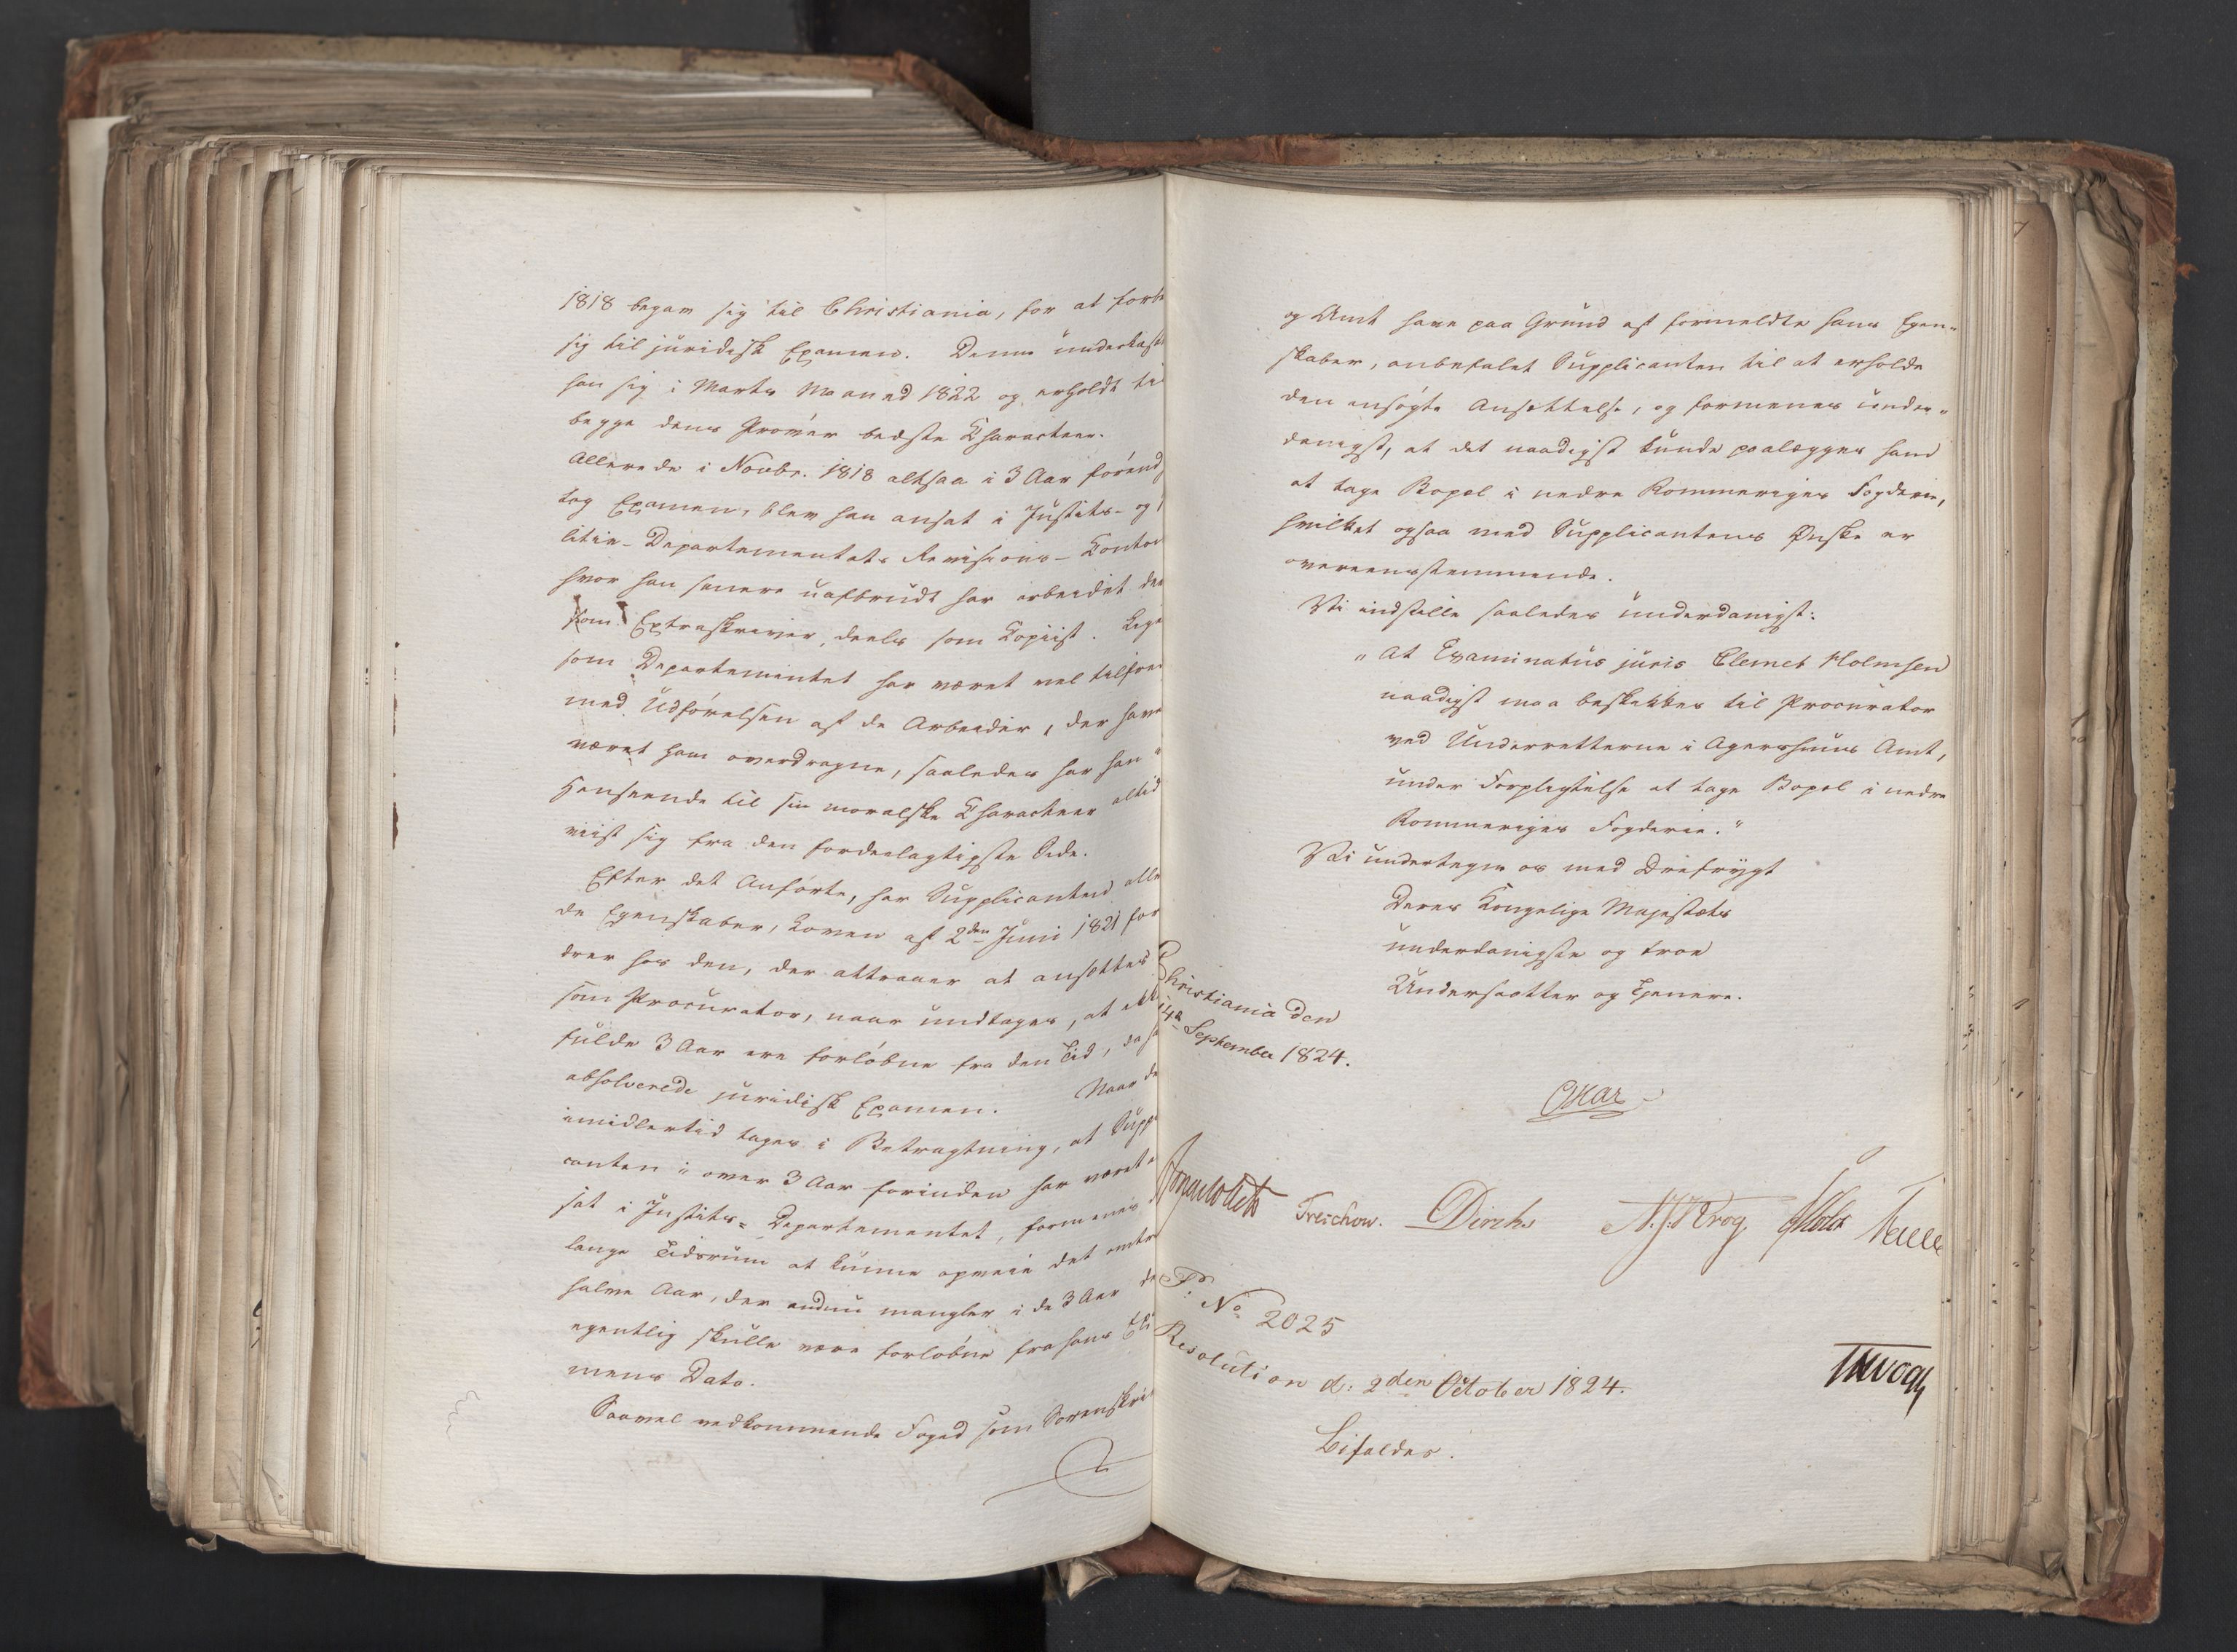 1818 begav sig til Christiania, for at forbe
sig til juridisk Examen. Denne underkast
han sig i Marts Maaned 1822 og erholdt til
begge dens Prøver bedste Charakteer.
Allerede i Novbr. 1818 altsaa i 3 Aar førend
tog Examen, blev han ansat i Justits- og
litie-Departementets Revisions-Contoir
hvor han senere uafbrudt har arbeidet dee
som Extraskriver, deels som Copiist. Lige
som Departementet har været vel tilfreds
med Udførelsen af de Arbeider, der have
været ham overdragne, saaledes har han i
Henseende til sin moralske Charakteer altid
viist sig fra den fordeelagtigste Side.
Efter det Anførte, har Supplicanten alle
de Egenskaber, Loven af 2den Juni 1821 for
drer hos den, der attraaer at ansættes
som Procurator, naar undtages, at ikke
fulde 3 Aar ere forløbne fra den Tid, da ha
absolverede juridisk Examen. Naar de
imidlertid tages i Betragtning, at Suppli
canten i over 3 Aar forinden har været a
sat i Justits-Departementet, formenes
lange Tidsrum at kunne opveie det omtr
halve Aar, der endnu mangler i de 3 Aar de
egentlig skulle være forløbne fra hans Exa
mens Dato.
Saavel vedkommende Foged som Sorenskri
og Amt have paa Grund af formeldte hans Egen-
skaber, anbefalet Supplicanten til at erholde
den ansøgte Ansættelse, og formenes under-
danigst, at det naadigst kunde paalægges ham
at tage Bopæl i nedre Rommeriges Fogderie,
hvilket ogsaa med Supplicantens Ønske er
overeensstemmende.
Vi indstille saaledes underdanigst:
„At Examinatus juris Clemet Holmsen
naadigst maa beskikkes til Procurator
ved Underretterne i Agershuus Amt,
under Forpligtelse at tage Bopæl i nedre
Rommeriges Fogderie."
Vi undertegne os med Dybfrygt
Deres Kongelige Majestæts
underdanigste og troe
Undersaatter og Tjenere.
Christiania den
14de September 1824.
Oscar
Treschow. Diriks N. J. Krog. JHolst
Pr: No 2025
Resolution d: 2den October 1824.
Bifaldes.